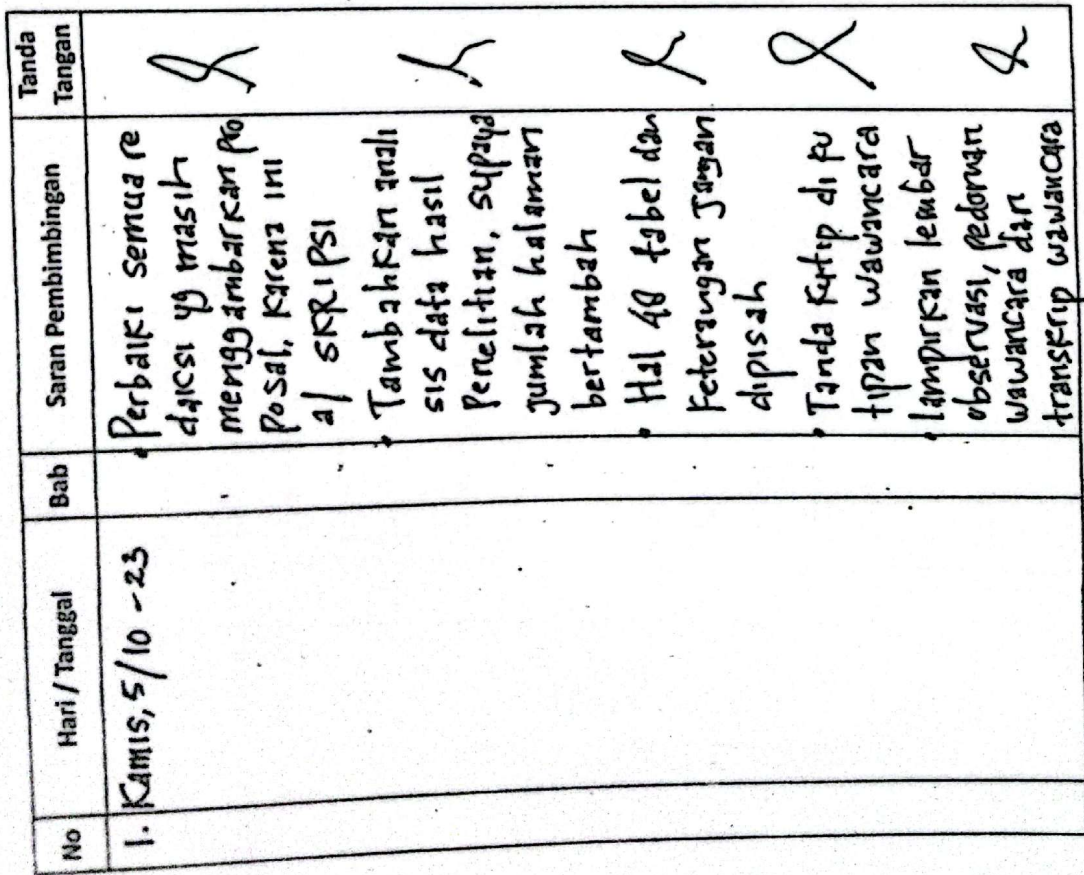 No
Hari / Tanggal
Bab
Saran Pembimbingan
Tanda
Tangan
1.
Kamis, 5/10 - 23
• Perbaiki semua re
daksi yg masih
menggambarkan pro
posal, karena ini
a/ SKRIPSI
• Tambahkan anali
sis data hasil
Penelitian, supaya
jumlah halaman
bertambah
• Hal 48 tabel dan
keterangan jangan
dipisah
• Tanda kutip di ku
tipan wawancara
• lampirkan lembar
observasi, pedoman
wawancara dan
transkrip wawancara